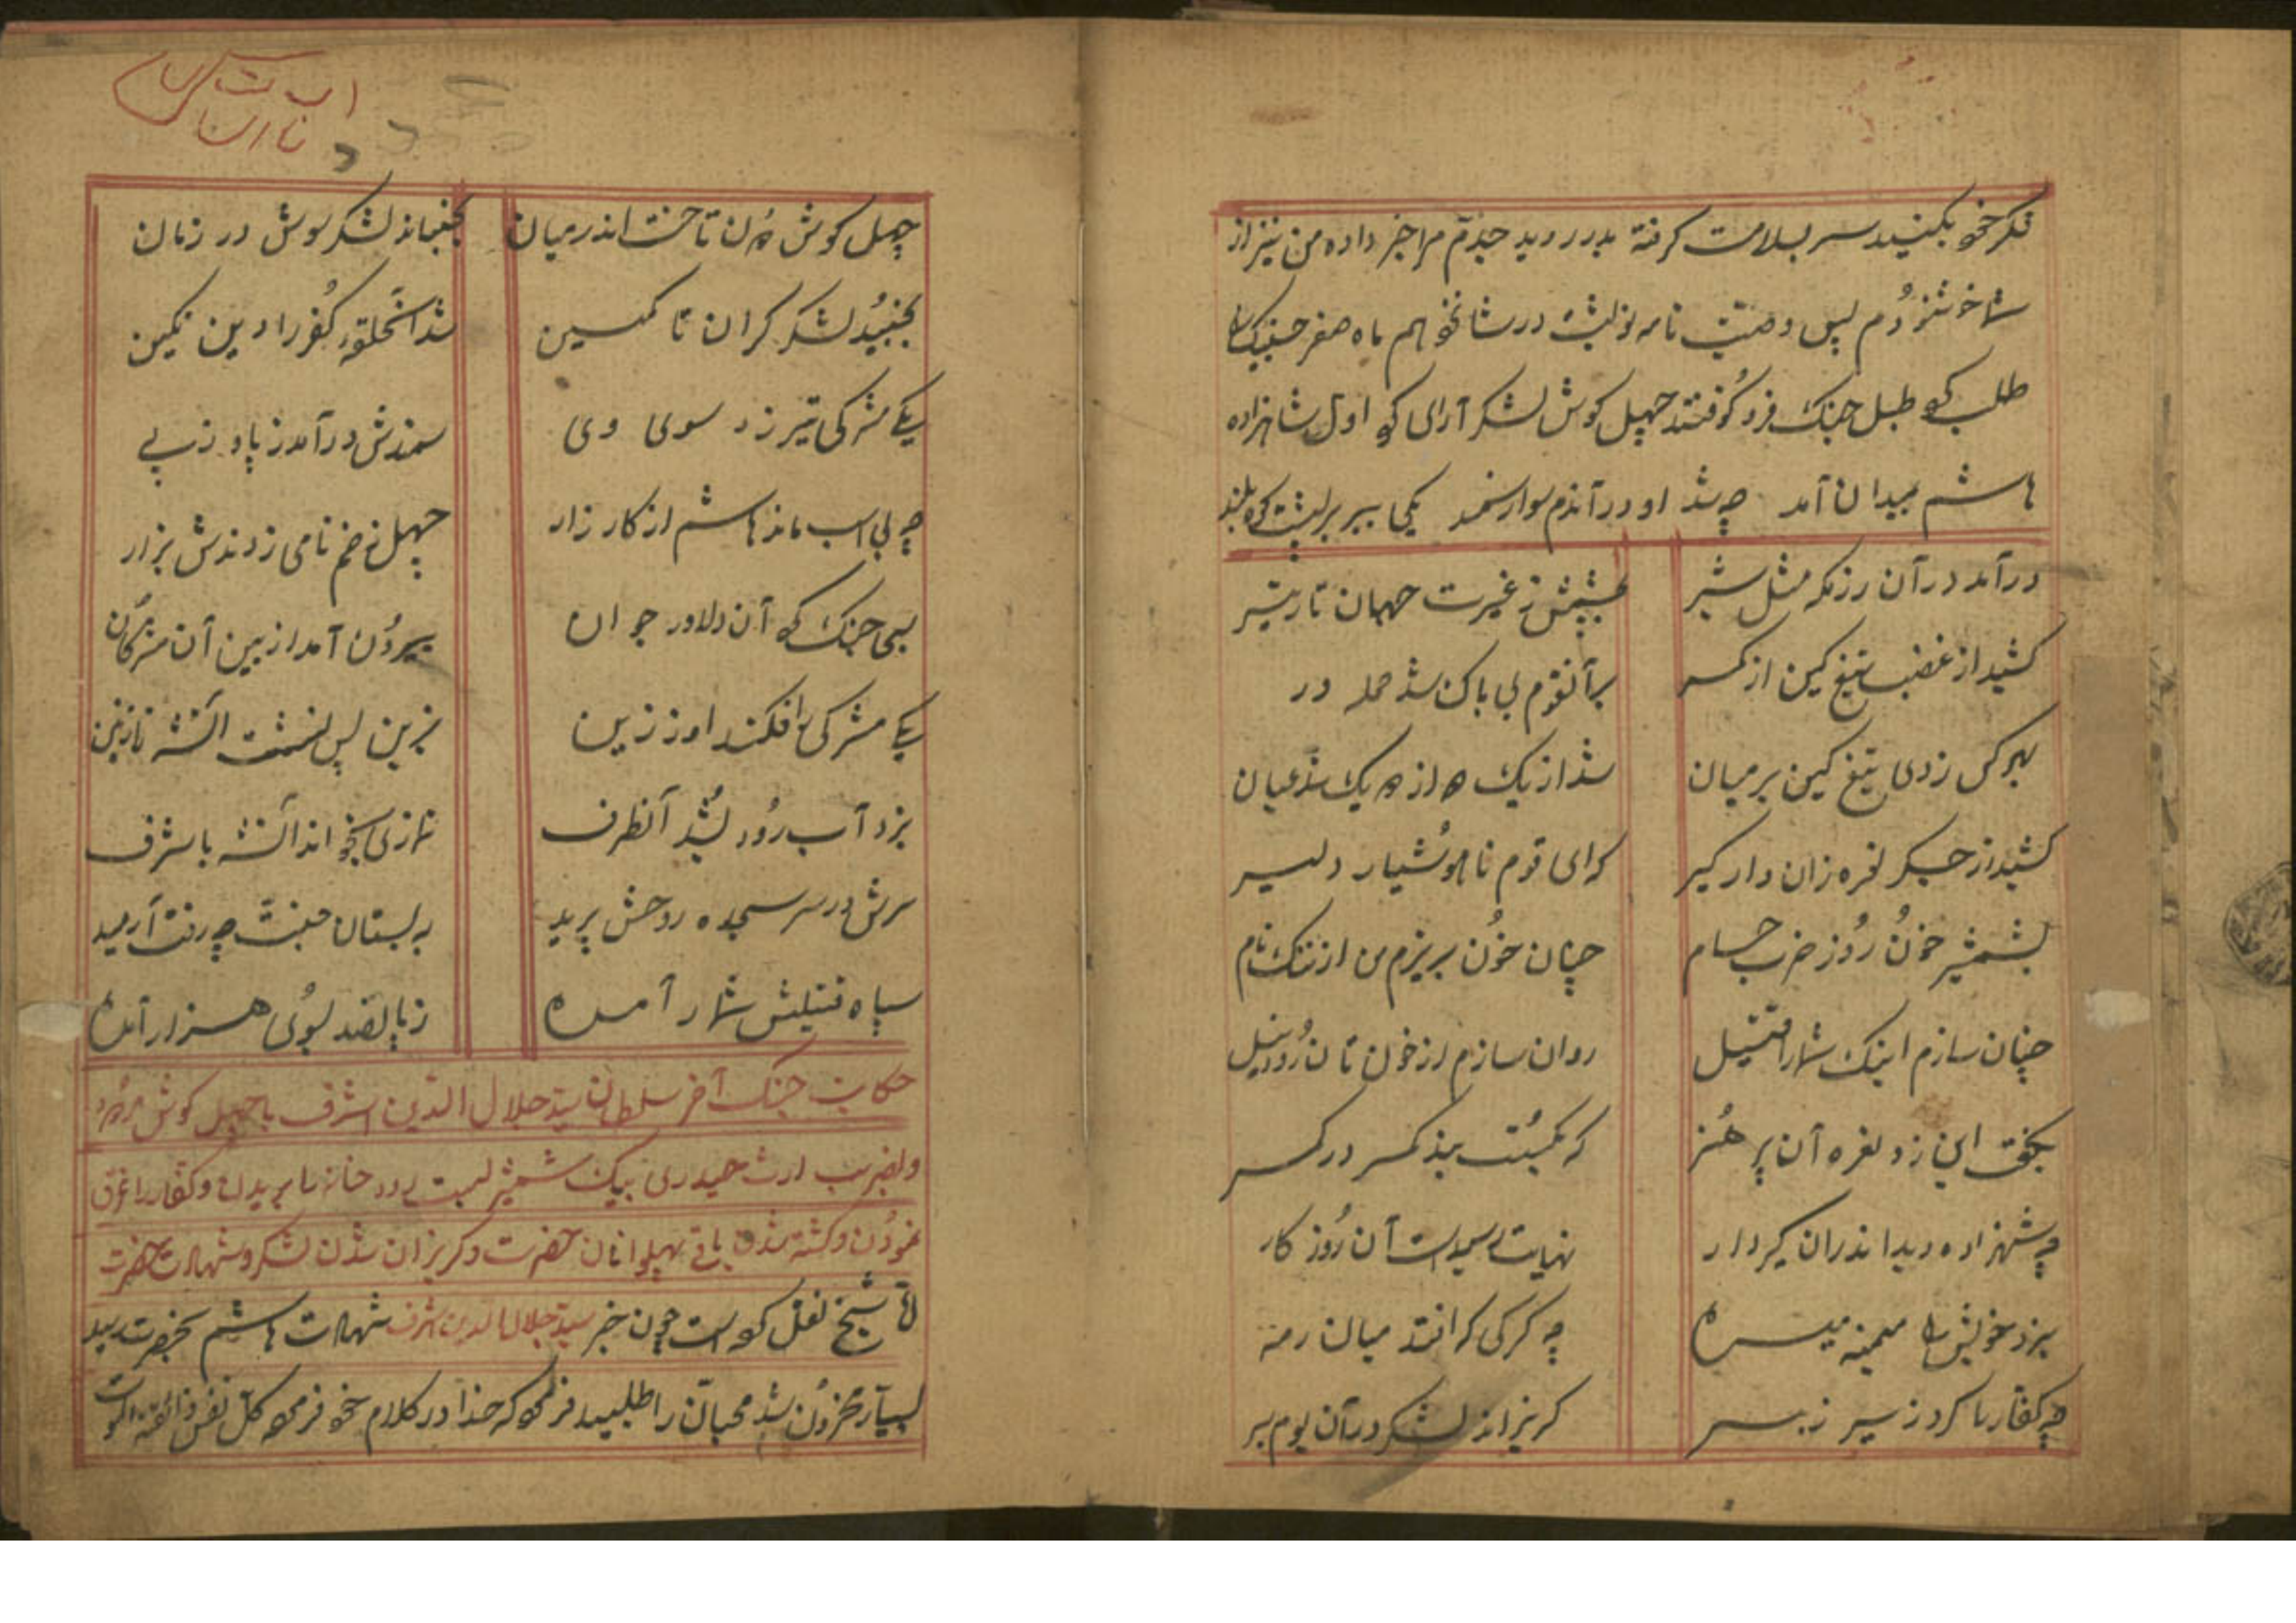 فکر خو بکنید سر بسلامت کرفته بدر روید جدم مرا خبر داده من نیز از
شما خوشنودم پس وصیت نامه نوشت در شانخو هم ماه صفر جنک را
طلب کو طبل جنک فرو کوفتند چهل کوش لشکر آرای کو اول شاهزاده
هاشم بمیدان آمد چه شد او در آندم سوار سمند یکی ببر بر پشت کوه بلند
در آمد در آن رزمکه مثل شیر بپیشش ز غیرت جهان تار تیر
کشید از غضب تیغ کین از کمر برآنقوم بی باک شد حمله ور
بهر کس زدی تیغ کین بر میان شد از یک دو از دو یک شد عیان
کشید از جکر نعره زان دار کیر که ای قوم ناهوشیار دلیر
بشمشیر خون روز ضرب حسام چنان خون بریزم من از ننک نام
چنان سازم اینک شما را قتیل روان سازم از خون تان رود نیل
بکفت این زد نعره آن پر هنر که بکسست بند کمر در کمر
چه شهزاده دید اندران کیردار نهایت رسیدست آن روز کار
بزد خویش را میمنه میسره چه کرکی که افتد میان رمه
چه کفار را کرد زیر زبر کریزاند لشکر در آن بوم بر
چهل کوش دون تاخت اندر میان بجنباند لشکر سوش در زمان
بجنبید لشکر کران تا کمین شد آنحلقه کفر را دین نکین
یکی مشرکی تیر زد سوی وی سمندش در آمد ز پا و ز پی
چه بی اسب ماند هاشم از کار زار چهل زخم نامی زدندش بزار
بسی جنک کو آن دلاور جوان بیرون آمد از بین آن مشرکان
یکی مشرکی را فکند او ز زین بزین پس نشست آنشه نازنین
بزد آب رود بشد آنطرف نمازی بخواند آنشه با شرف
سرش در سر سجده روحش پرید به بستان جنت چه رفت آرمید
سپاه قتیلش شمار آمده ز پانصد بوی هزار آمده
حکایت جنک آخر سلطان سید جلال الدین اشرف با چهل کوش
و بضرب ارث حیدری بیک شمشیر لب رود خانه را بریدن و کفار را غرق
نمودن و کشته شدن باقی پهلوانان حضرت و کریزان شدن لشکر و شهادت حضرت
شیخ نقل کو است چون خبر سید جلال الدین اشرف شهادت هاشم بحضرت رسید
بسیار محزون شد محبان را طلبید فرمو که خدا در کلام خو فرمو کل نفس ذائقة الموت